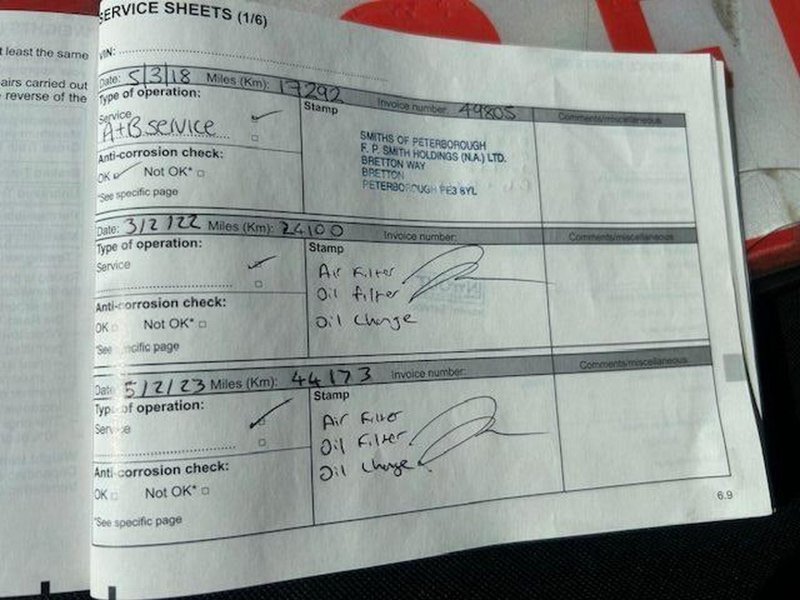 t least the same
airs carried out
reverse of the
SERVICE SHEETS (1/6)
VIN:
Date: 5/3/18 Miles (Km): 17292 Invoice number: 49805 Comments/miscellaneous
Type of operation:
Stamp
Service
A+B SERVICE
SMITHS OF PETERBOROUGH
F. P. SMITH HOLDINGS (N.A.) LTD.
BRETTON WAY
BRETTON
PETERBOROUGH PE3 8YL
Anti-corrosion check:
OK Not OK*
*See specific page
Date: 3/2/22 Miles (Km): 24100 Invoice number: Comments/miscellaneous
Type of operation:
Stamp
Service
Air Filter
Oil filter
Oil Change
Anti-corrosion check:
OK Not OK*
*See specific page
Date: 5/2/23 Miles (Km): 44173 Invoice number: Comments/miscellaneous
Type of operation:
Stamp
Service
Air Filter
Oil Filter
Oil Change
Anti-corrosion check:
OK Not OK*
*See specific page
6.9